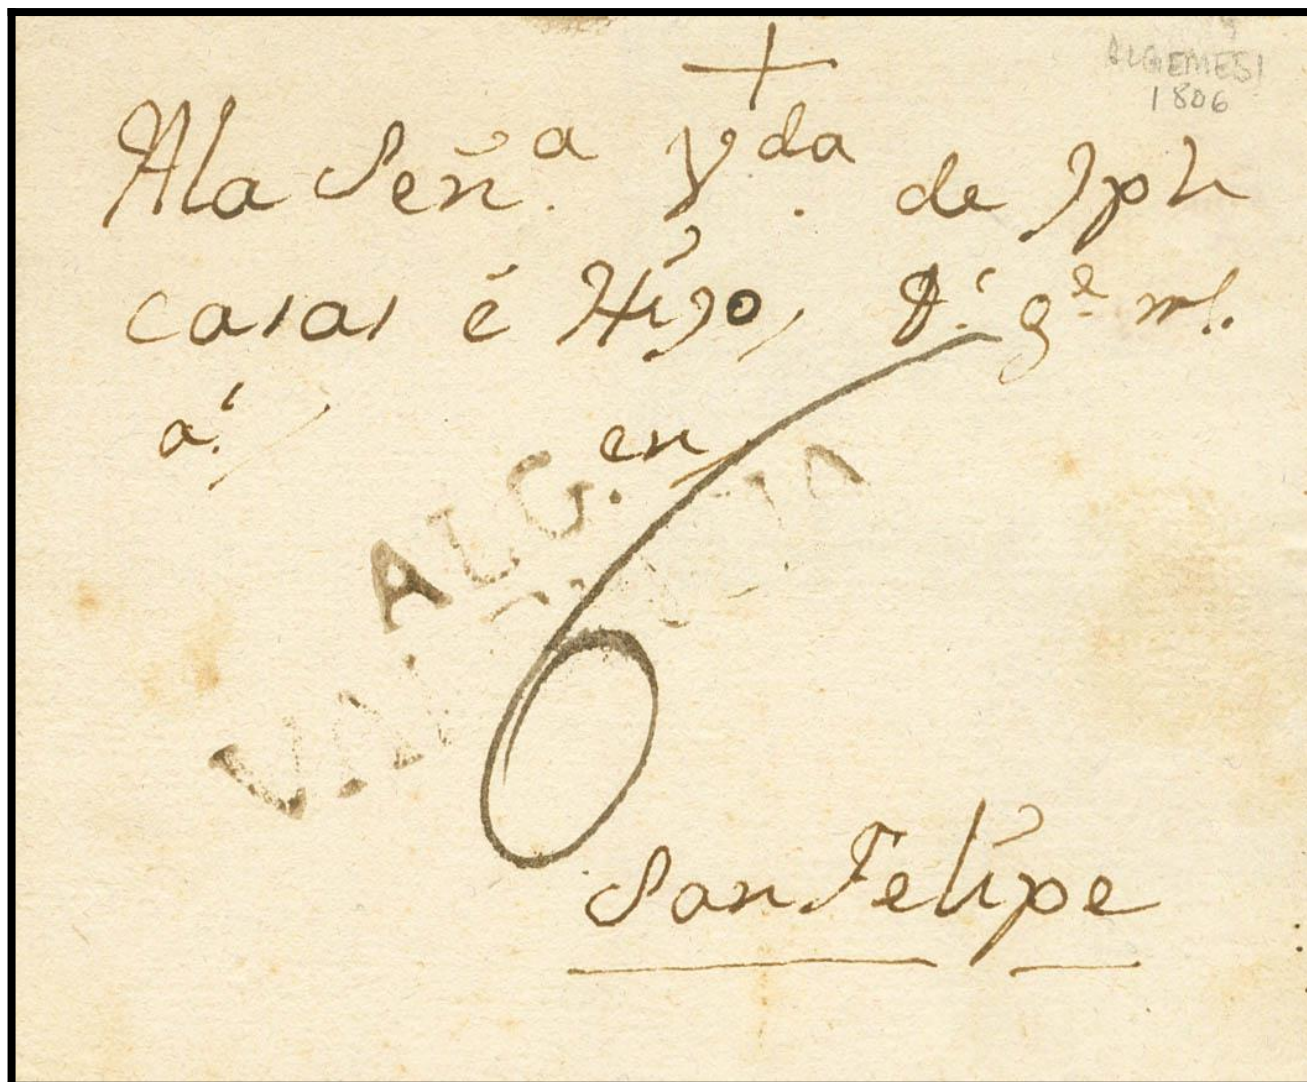 +
ALGEMESI
1806
A la Señ.ª V.da de Jph
casas é Hijo, D.s g.e m.s
a.s
en
ALG.
VALENCIA
6
San Felipe